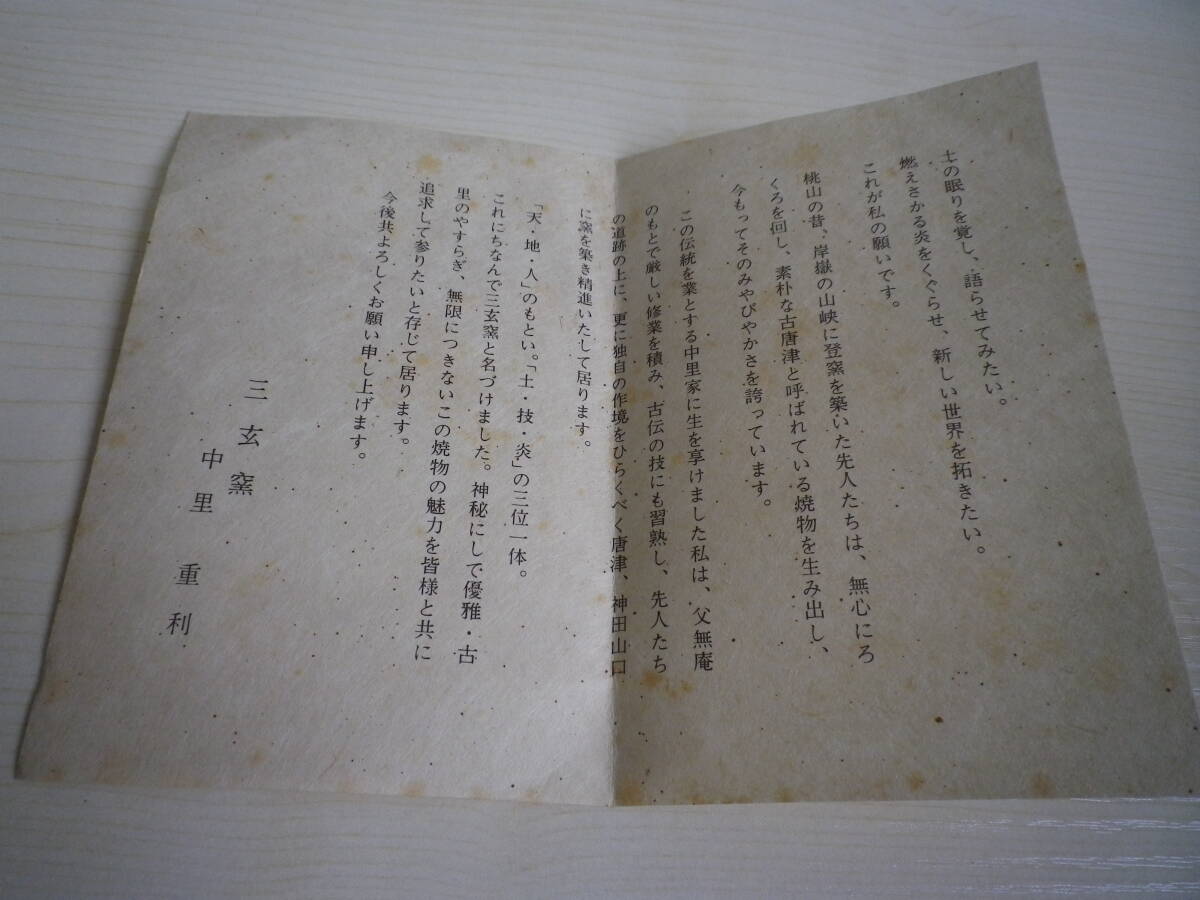 土の眠りを覚し、語らせてみたい。
燃えさかる炎をくぐらせ、新しい世界を拓きたい。
これが私の願いです。
桃山の昔、岸嶽の山峡に登窯を築いた先人たちは、無心にろ
くろを回し、素朴な古唐津と呼ばれている焼物を生み出し、
今もってそのみやびやかさを誇っています。
この伝統を業とする中里家に生を享けました私は、父無庵
のもとで厳しい修業を積み、古伝の技にも習熟し、先人たち
の道跡の上に、更に独自の作境をひらくべく唐津、神田山口
に窯を築き精進いたして居ります。
「天・地・人」のもとい。「土・技・炎」の三位一体。
これにちなんで三玄窯と名づけました。神秘にして優雅・古
里のやすらぎ、無限につきないこの焼物の魅力を皆様と共に
追求して参りたいと存じて居ります。
今後共よろしくお願い申し上げます。
三玄窯
中里重利